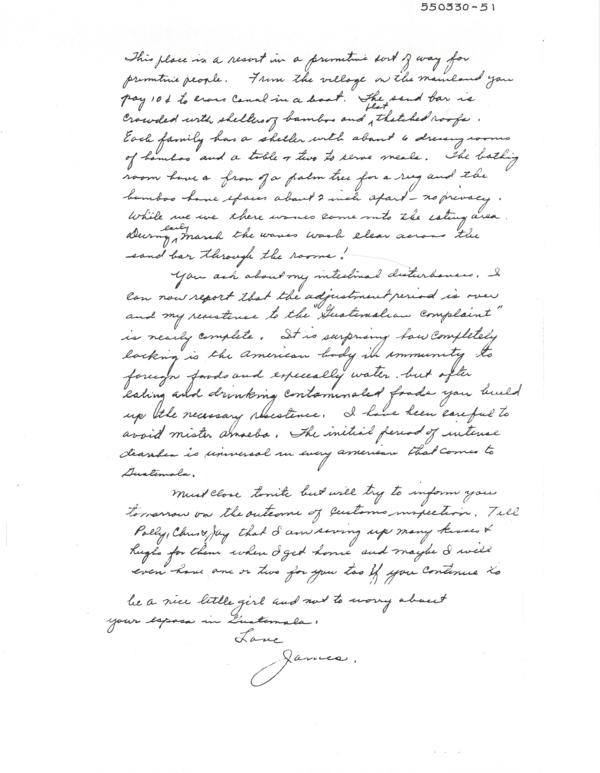 550330-51
This place is a resort in a primitive sort of way for
primitive people. From the village on the mainland you
pay 10¢ to cross canal in a boat. The sand bar is
crowded with shelters of bamboo and flat thatched roofs.
Each family has a shelter with about 6 dressing rooms
of bamboo and a table or two to serve meals. The bathing
room have a fron of a palm tree for a rug and the
bamboo have spaces about 2 inch apart - no privacy.
While we we there waves come into the eating area.
During early March the waves wash clear across the
sand bar through the rooms!
You ask about my intestinal disturbances. I
can now report that the adjustment period is over
and my resistence to the "Guatemalian Complaint"
is nearly complete. It is surprising how completely
lacking is the american body in immunity to
foreign foods and especially water but after
eating and drinking contaminated foods you build
up the necessary resistence. I have been careful to
avoid mister amoeba. The initial period of intense
diarrhea is universal in every american that comes to
Guatemala.
Must close tonite but will try to inform you
tomorrow on the outcome of Customs inspection. Tell
Polly, Chris & Jay that I am saving up many kisses &
hughs for them when I get home and maybe I will
even have one or two for you too if you continue to
be a nice little girl and not to worry about
your esposa in Guatemala.
Love
James.